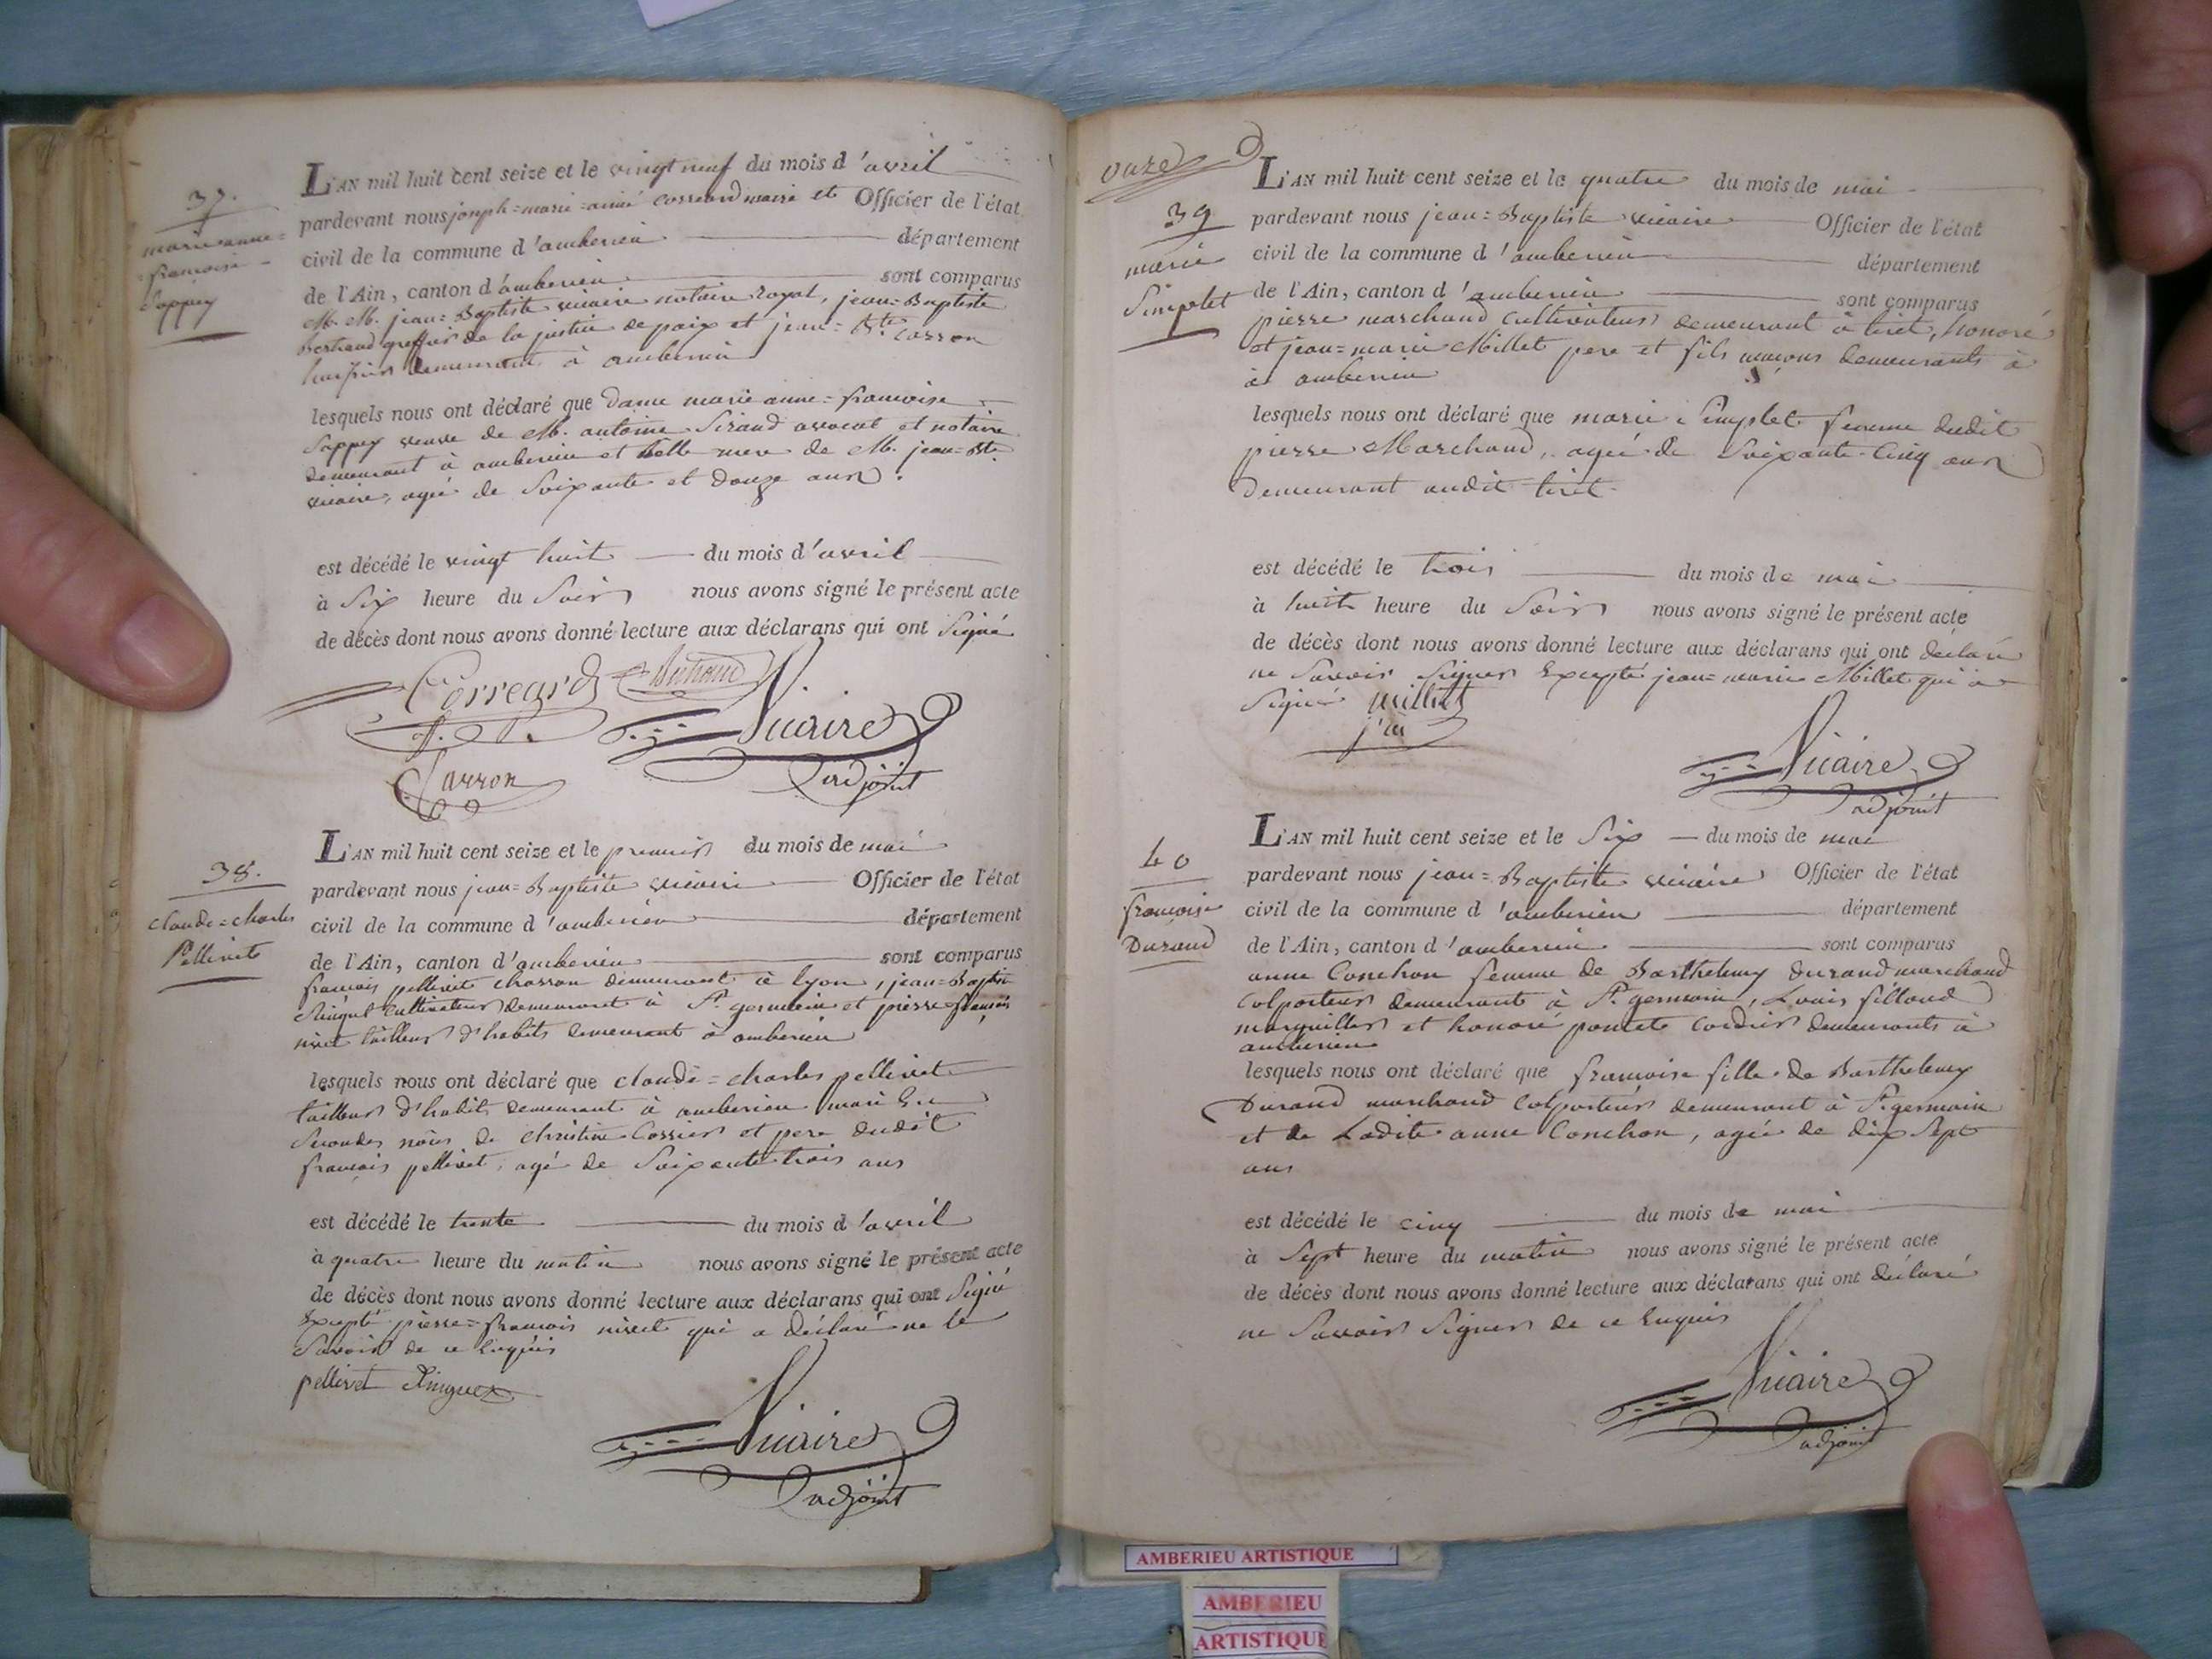 37.
marie anne =
= francoise =
Sappey
L'AN mil huit cent seize et le vingt neuf du mois d'avril
pardevant nous joseph = marie = aimé Correard maire et Officier de l'état
civil de la commune d'amberieu département
de l'Ain, canton d'amberieu sont comparus
M. M. jean = Baptiste vicaire notaire Royal, jean = Baptiste
Bertrand greffier de la justice de paix et jean = Bte Carron
huissier demeurant à amberieu
lesquels nous ont déclaré que dame marie anne = francoise
Sappey veuve de M. antoine Sirand avocat et notaire
demeurant à amberieu et belle mere de M. jean = Bte
vicaire, agée de Soixante et douze ans.
est décédé le vingt huit du mois d'avril
à Six heure du Soir nous avons signé le présent acte
de décès dont nous avons donné lecture aux déclarans qui ont Signé
Correard Bertrand
Vicaire
Carron adjoint
38.
claude = charles
Pellivet
L'AN mil huit cent seize et le premier du mois de mai
pardevant nous jean = Baptiste vicaire Officier de l'état
civil de la commune d'amberieu département
de l'Ain, canton d'amberieu sont comparus
francois pellivet demeurant à Lyon, jean = Baptiste
cultivateur demeurant à St. germain et pierre francois
nivet tailleur d'habits demeurant à amberieu
lesquels nous ont déclaré que claude = charles pellivet
tailleur d'habits demeurant à amberieu mari En
Secondes nôces de christine Cossier et pere dudit
francois pellivet, agé de Soixante trois ans
est décédé le trente du mois d'avril
à quatre heure du matin nous avons signé le présent acte
de décès dont nous avons donné lecture aux déclarans qui ont Signé
Excepté pierre = francois nivet qui a déclaré ne le
Savoir de ce Enquis
pellivet
Vicaire
adjoint
39
marie
Simplet
L'AN mil huit cent seize et le quatre du mois de mai
pardevant nous jean = Baptiste vicaire Officier de l'état
civil de la commune d'amberieu département
de l'Ain, canton d'amberieu sont comparus
pierre marchand cultivateur demeurant à tiret, honoré
et jean = marie Millet pere et fils macons demeurants à
à amberieu
lesquels nous ont déclaré que marie Simplet femme dudit
pierre Marchand, agée de Soixante Cinq ans
Demeurant audit tiret.
est décédé le trois du mois de mai
à huit heure du Soir nous avons signé le présent acte
de décès dont nous avons donné lecture aux déclarans qui ont déclaré
ne Savoir Signer Excepté jean = marie Millet qui a
Signé millet
Vicaire
adjoint
40
francoise
Durand
L'AN mil huit cent seize et le Six du mois de mai
pardevant nous jean = Baptiste vicaire Officier de l'état
civil de la commune d'amberieu département
de l'Ain, canton d'amberieu sont comparus
anne Conchon femme de Barthelemy durand marchand
Colporteur demeurant à St. germain, Louis fillaud
marguillier et honoré poncet Cordier demeurants à
amberieu
lesquels nous ont déclaré que francoise fille de Barthelemy
Durand marchand Colporteur demeurant à St. germain
et de Ladite anne Conchon, agée de dix Sept
ans
est décédé le cinq du mois de mai
à Sept heure du matin nous avons signé le présent acte
de décès dont nous avons donné lecture aux déclarans qui ont déclaré
ne Savoir Signer de ce Enquis
Vicaire
adjoint
AMBERIEU ARTISTIQUE
AMBERIEU
ARTISTIQUE